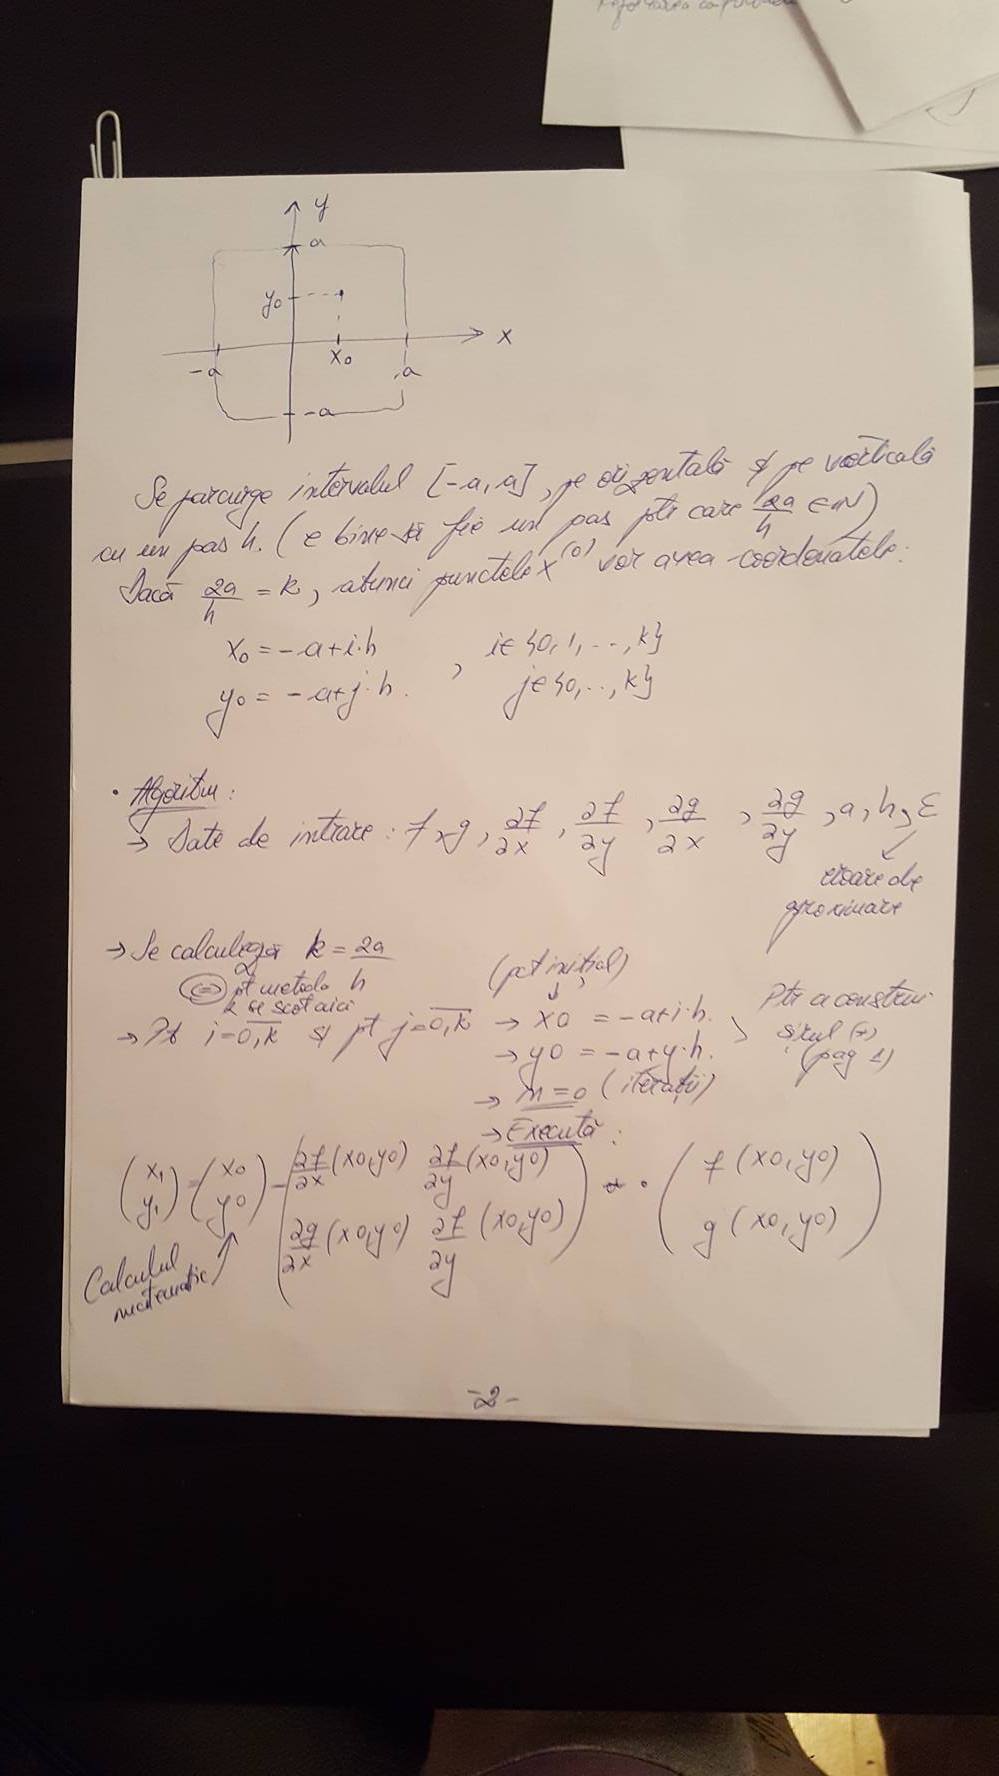 y
a
y₀
x
x₀
-a
a
-a
Se parcurge intervalul [-a, a], pe orizontală și pe verticală
cu un pas h. (e bine să fie un pas ptr care 2a/h ∈ N)
Dacă 2a/h = k, atunci punctele x⁽⁰⁾ vor avea coordonatele:
x₀ = -a+i·h , i∈{0,1,...,k}
y₀ = -a+j·h. j∈{0,..,k}
• Algoritm:
→ Date de intrare: f, g, ∂f/∂x, ∂f/∂y, ∂g/∂x, ∂g/∂y, a, h, ε
eroare de
aproximare
→ Se calculează k = 2a/h
pt metoda
k se scot aici
(pct inițial)
→ Pt i=0,k și pt j=0,k → x0 = -a+i·h.
→ y0 = -a+y·h.
Ptr a construi
șirul (*)
(pag 1)
→ m=0 (iterații)
→ Execută:
(x₁ y₁) = (x0 y0) - (∂f/∂x (x0,y0) ∂f/∂y (x0,y0) ∂g/∂x (x0,y0) ∂f/∂y (x0,y0)) · (f (x0,y0) g (x0,y0))
Calculul
matematic
-2-